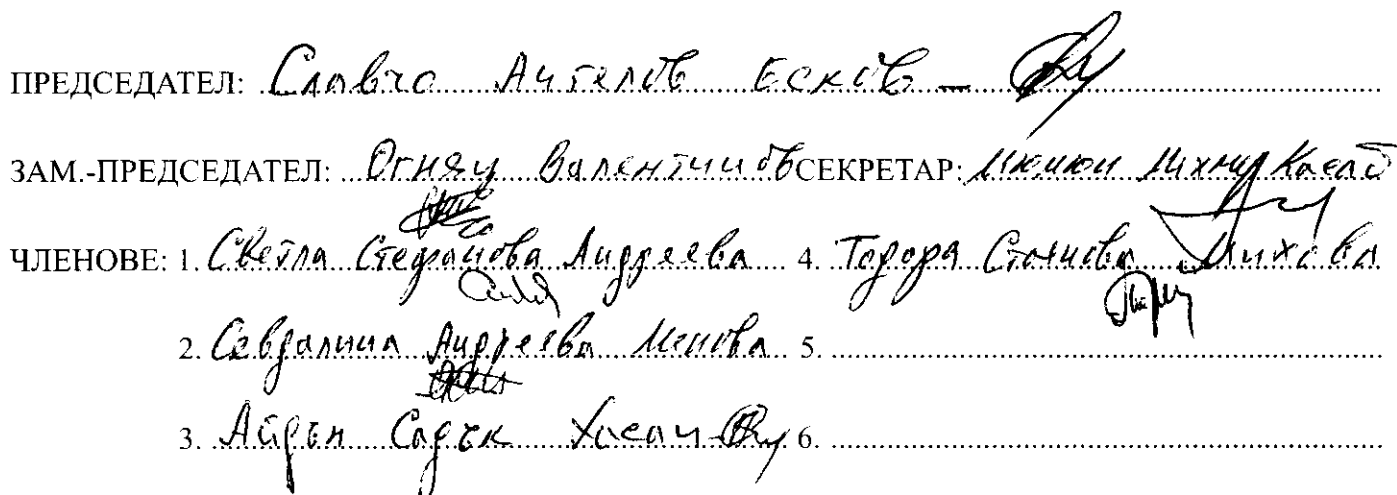 ПРЕДСЕДАТЕЛ: Славчо Ангелов Есков -
ЗАМ.-ПРЕДСЕДАТЕЛ: Огнян Валентинов СЕКРЕТАР:
ЧЛЕНОВЕ: 1. Светла Стефанова Андреева 4. Тодора Стоянова Михова
2. Севдалина Андреева Менова 5.
3. Айдън Садък Хасан 6.